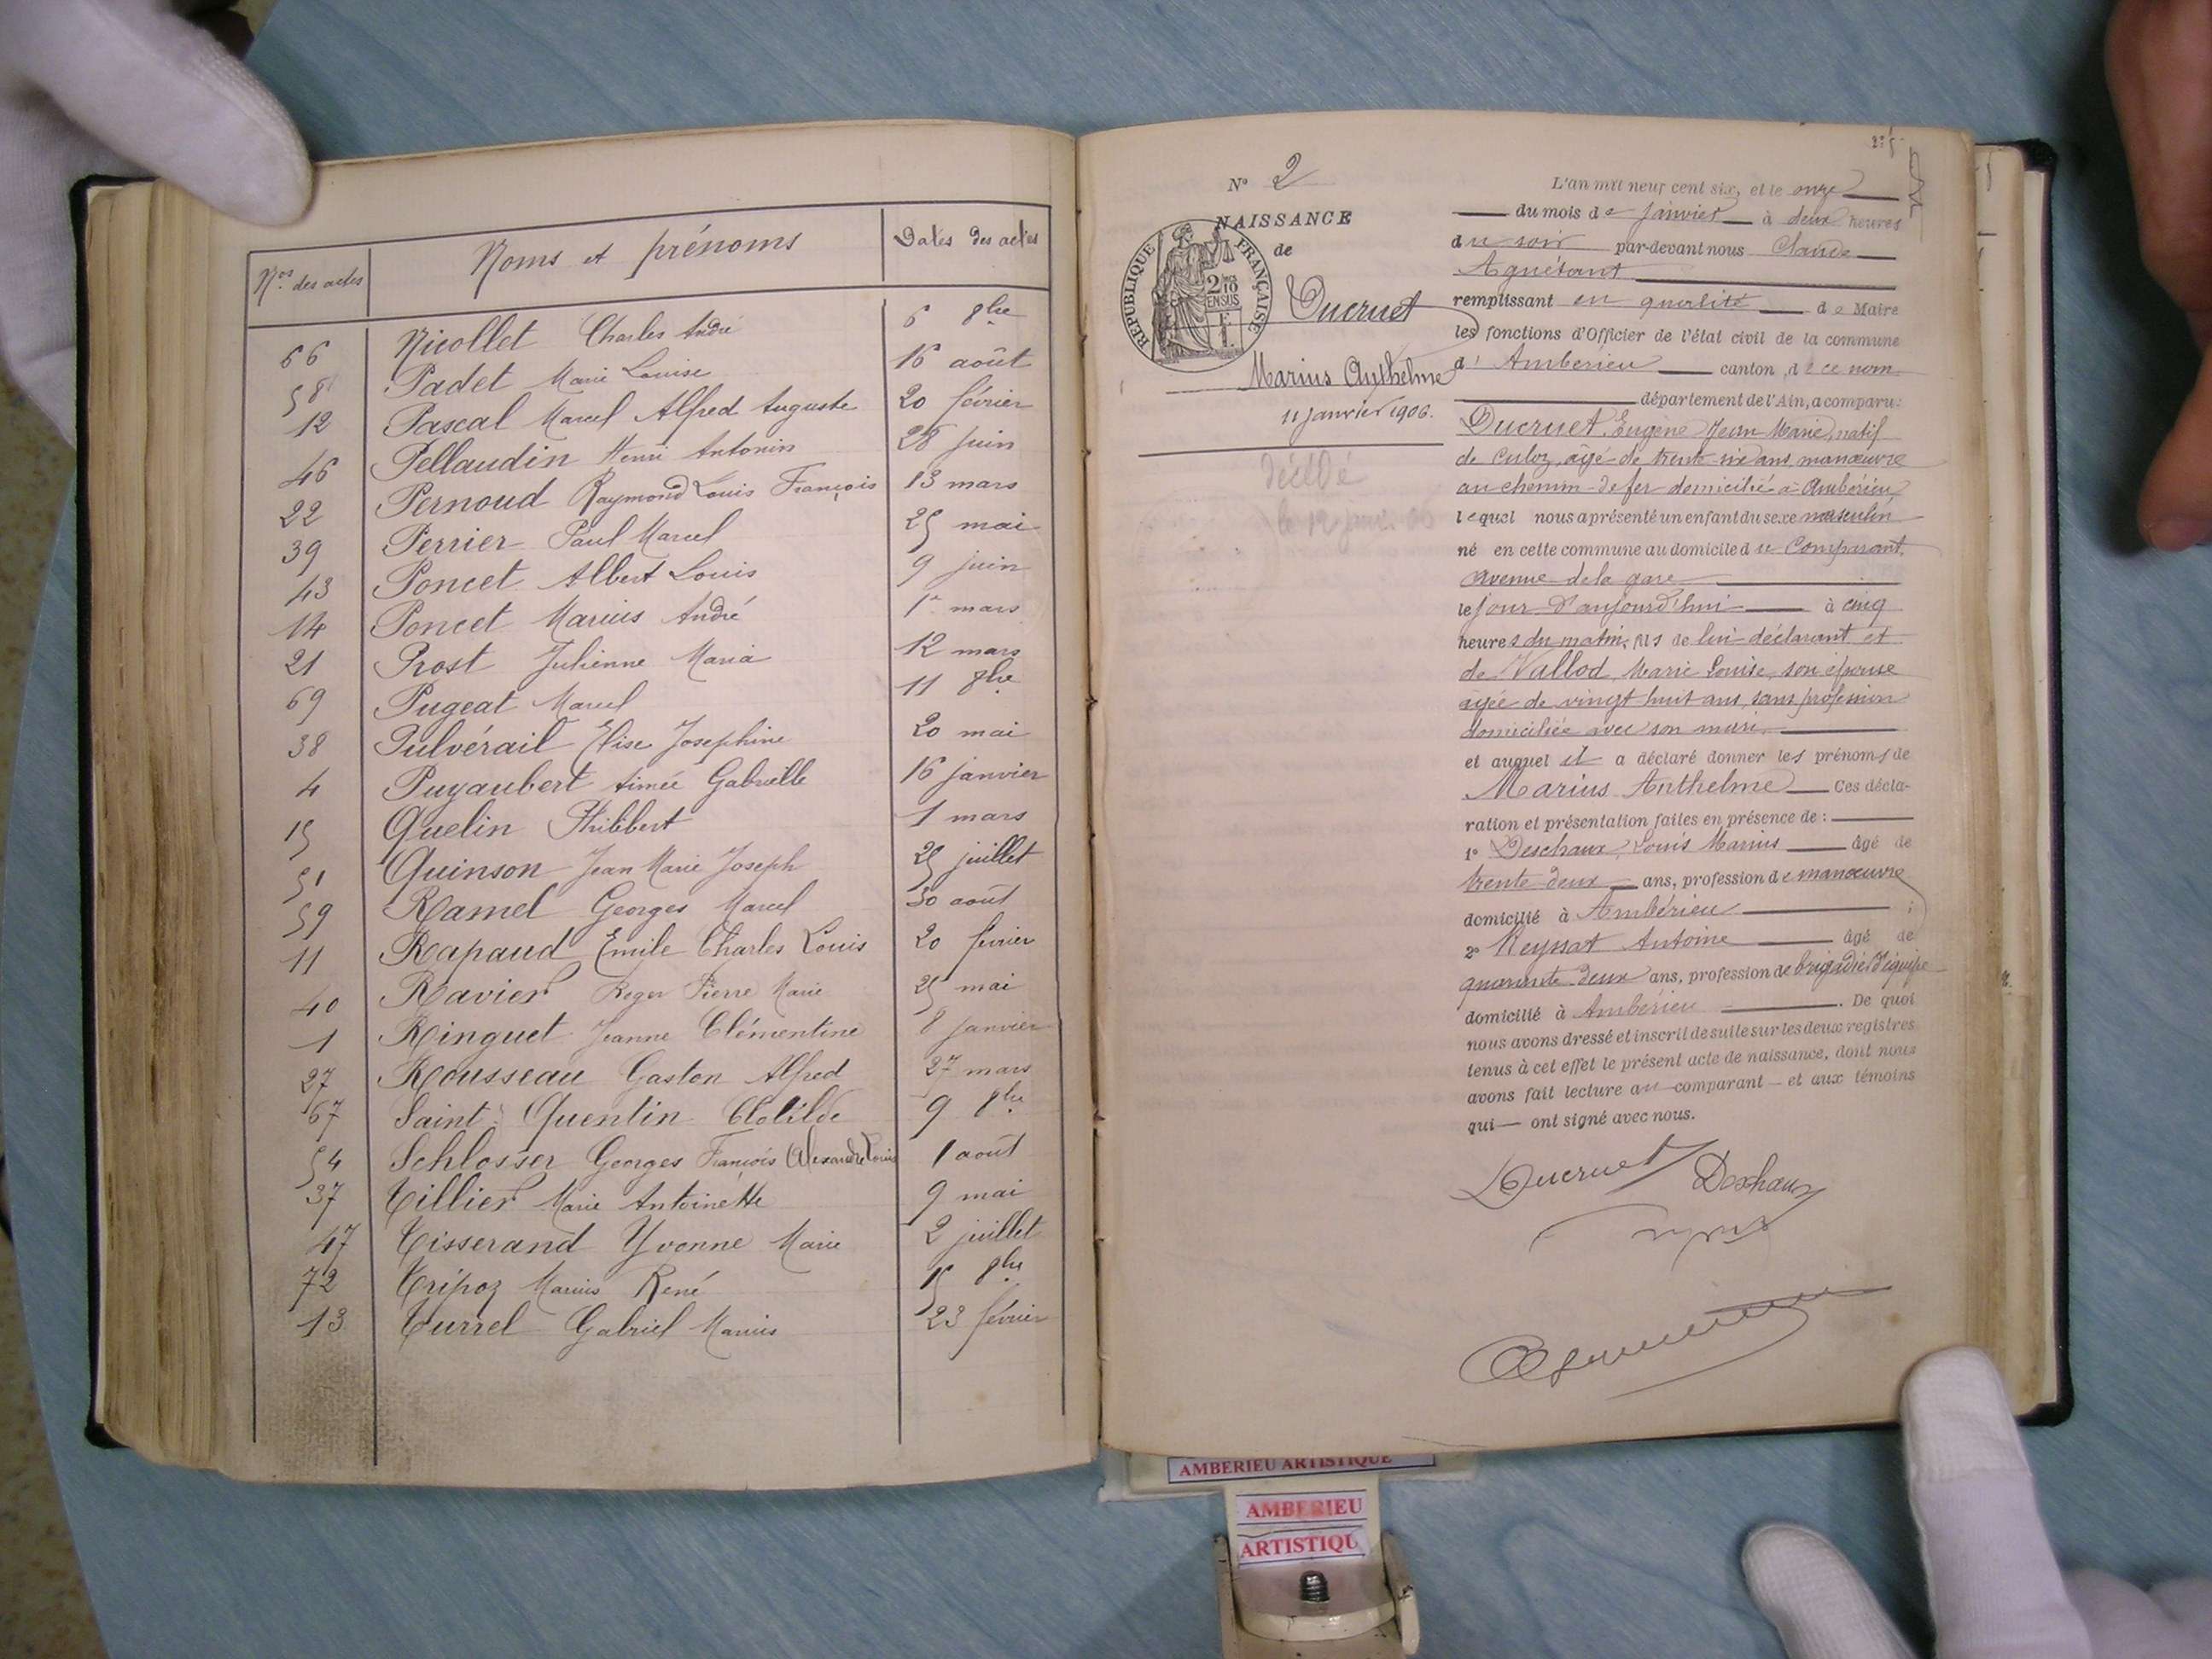 Nos des actes Noms et prénoms Dates des actes
66 Nicollet Charles André 6 8bre
58 Padet Marie Louise 16 août
12 Pascal Marcel Alfred Auguste 20 février
46 Pellaudin Henri Antonin 28 juin
22 Pernoud Raymond Louis François 13 mars
39 Perrier Paul Marcel 25 mai
43 Poncet Albert Louis 9 juin
14 Poncet Marius André 1er mars
21 Prost Julienne Maria 12 mars
69 Pugeat Marcel 11 8bre
38 Pulvérail Elise Josephine 20 mai
4 Puyaubert Aimée Gabrielle 16 janvier
15 Quelin Philibert 1 mars
51 Quinson Jean Marie Joseph 25 juillet
59 Ramel Georges Marcel 30 août
11 Rapaud Emile Charles Louis 20 février
40 Ravier Roger Pierre Marie 25 mai
1 Ringuet Jeanne Clémentine 8 janvier
27 Rousseau Gaston Alfred 27 mars
67 Saint-Quentin Clotilde 9 8bre
54 Schlosser Georges François Alexandre Louis 1 août
37 Tillier Marie Antoinette 9 mai
47 Tisserand Yvonne Marie 2 juillet
72 Tripoz Marius René 15 8bre
13 Turrel Gabriel Marius 23 février
N° 2
NAISSANCE
de
REPUBLIQUE FRANÇAISE
2/10 EN SUS
Ducruet
Marius Anthelme
11 janvier 1906.
décédé
L'an mil neuf cent six, et le onze
du mois de janvier à deux heures
du soir par-devant nous Claude
Aguétant
remplissant en qualité de Maire
les fonctions d'Officier de l'état civil de la commune
d'Amberieu canton de ce nom
département de l'Ain, a comparu:
Ducruet Eugène Jean Marie, natif
de Culoz, âgé de trente-six ans, manœuvre
au chemin de fer domicilié à Ambérieu,
lequel nous a présenté un enfant du sexe masculin
né en cette commune au domicile du Comparant,
avenue de la gare
le jour d'aujourd'hui à cinq
heures du matin, fils de lui déclarant et
de Vallod Marie Louise, son épouse
âgée de vingt huit ans, sans profession
domiciliée avec son mari,
et auquel il a déclaré donner les prénoms de
Marius Anthelme Ces décla-
ration et présentation faites en présence de :
1° Deschaux, Louis Marius âgé de
trente deux ans, profession de manœuvre
domicilié à Ambérieu ;
2° Reyssat Antoine âgé de
quarante-deux ans, profession de brigadier d'équipe
domicilié à Ambérieu. De quoi
nous avons dressé et inscrit de suite sur les deux registres
tenus à cet effet le présent acte de naissance, dont nous
avons fait lecture au comparant et aux témoins
qui ont signé avec nous.
Ducruet Deschaux
AMBERIEU ARTISTIQUE
AMBERIEU
ARTISTIQU